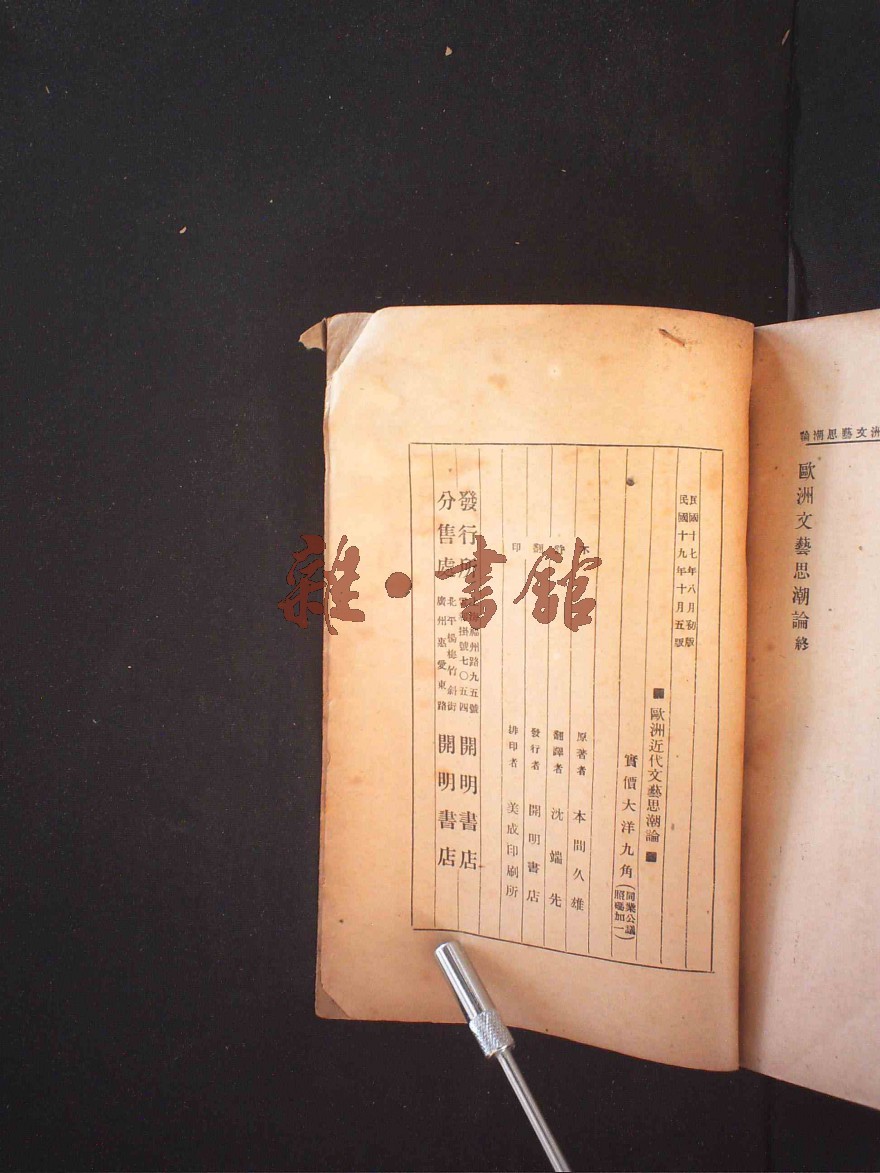 洲文藝思潮論
歐洲文藝思潮論 終
民國十七年八月初版
民國十九年十月五版
歐洲近代文藝思潮論
實價大洋九角
(同業公議
照碼加一)
原著者 本間久雄
翻譯者 沈端先
翻
發行者 開明書店
印
排印者 美成印刷所
發行所
福州路九五號
掛號七〇五四
開明書店
分售處
北平楊梅竹斜街
廣州惠愛東路
開明書店
雜·書館